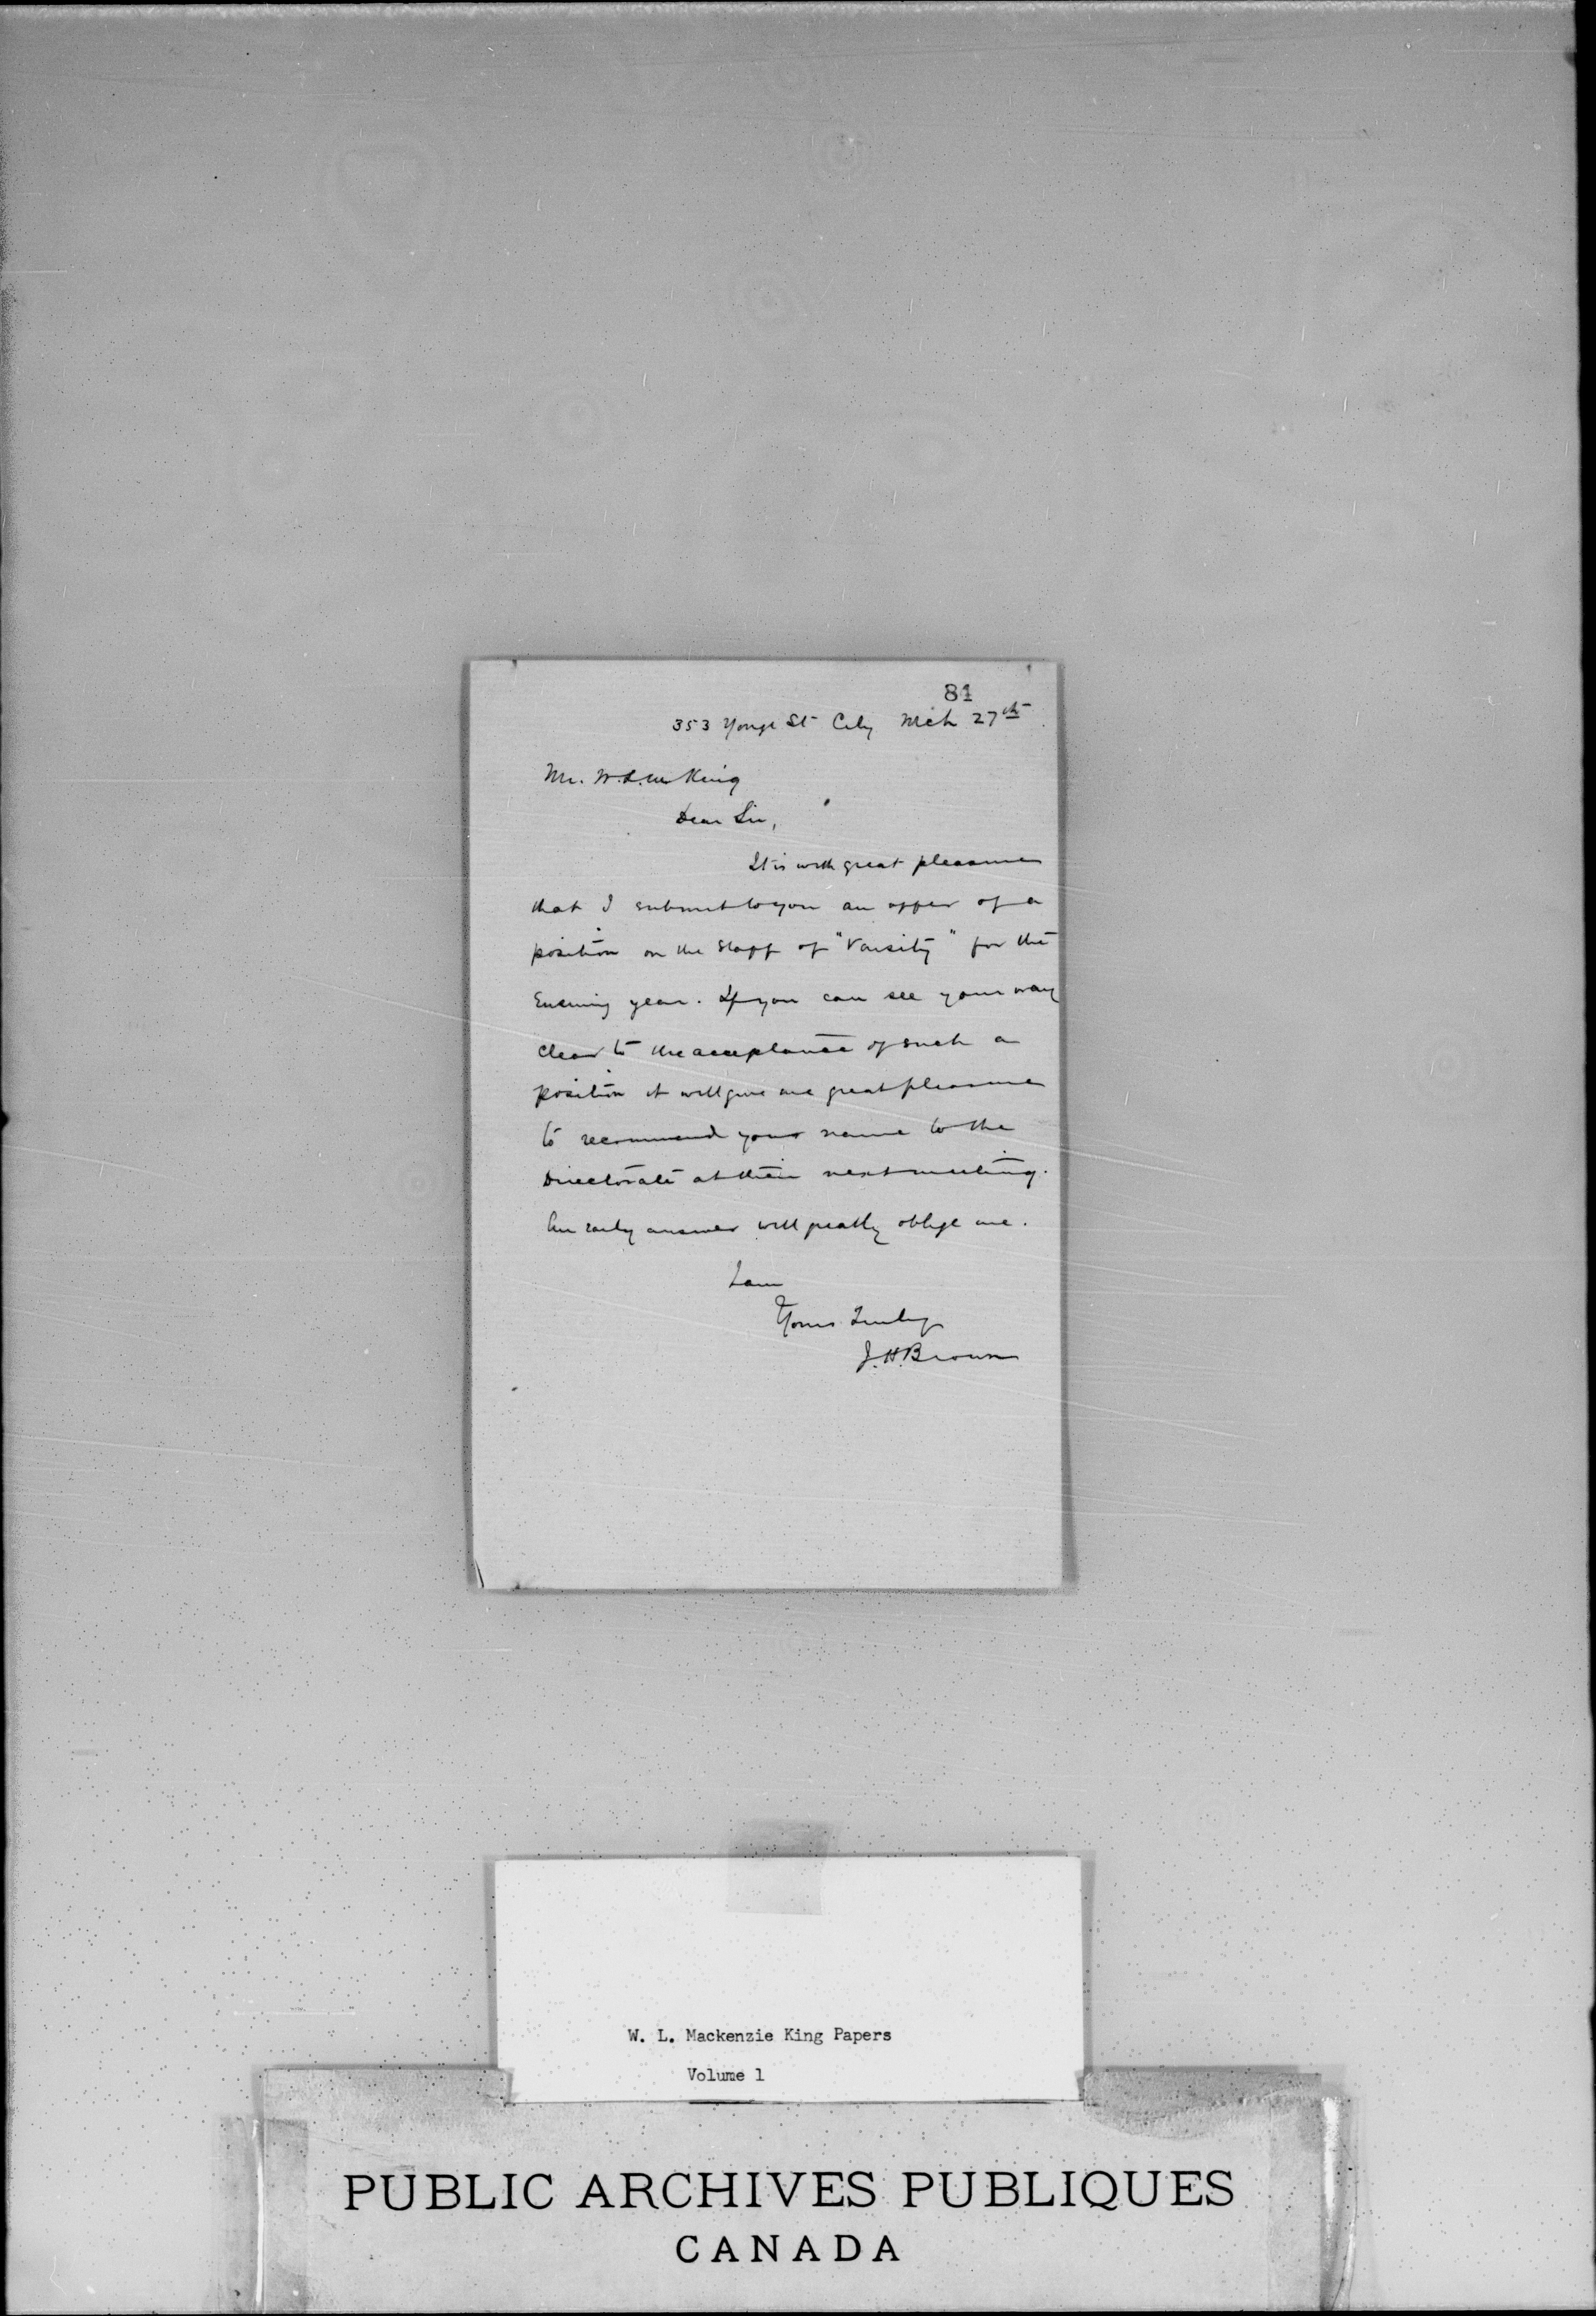 81
353 Yonge St City Mch 27th
Mr. W. L. M King
Dear Sir,
It is with great pleasure
that I submit to you an offer of a
position on the Staff of "Varsity" for the
Ensuing year. If you can see your way
clear to the acceptance of such a
position it will give me great pleasure
to recommend your name to the
Directorate at their next meeting.
An early answer will greatly oblige me.
I am
Yours Truly
J. H. Brown
W. L. Mackenzie King Papers
Volume 1
PUBLIC ARCHIVES PUBLIQUES
CANADA